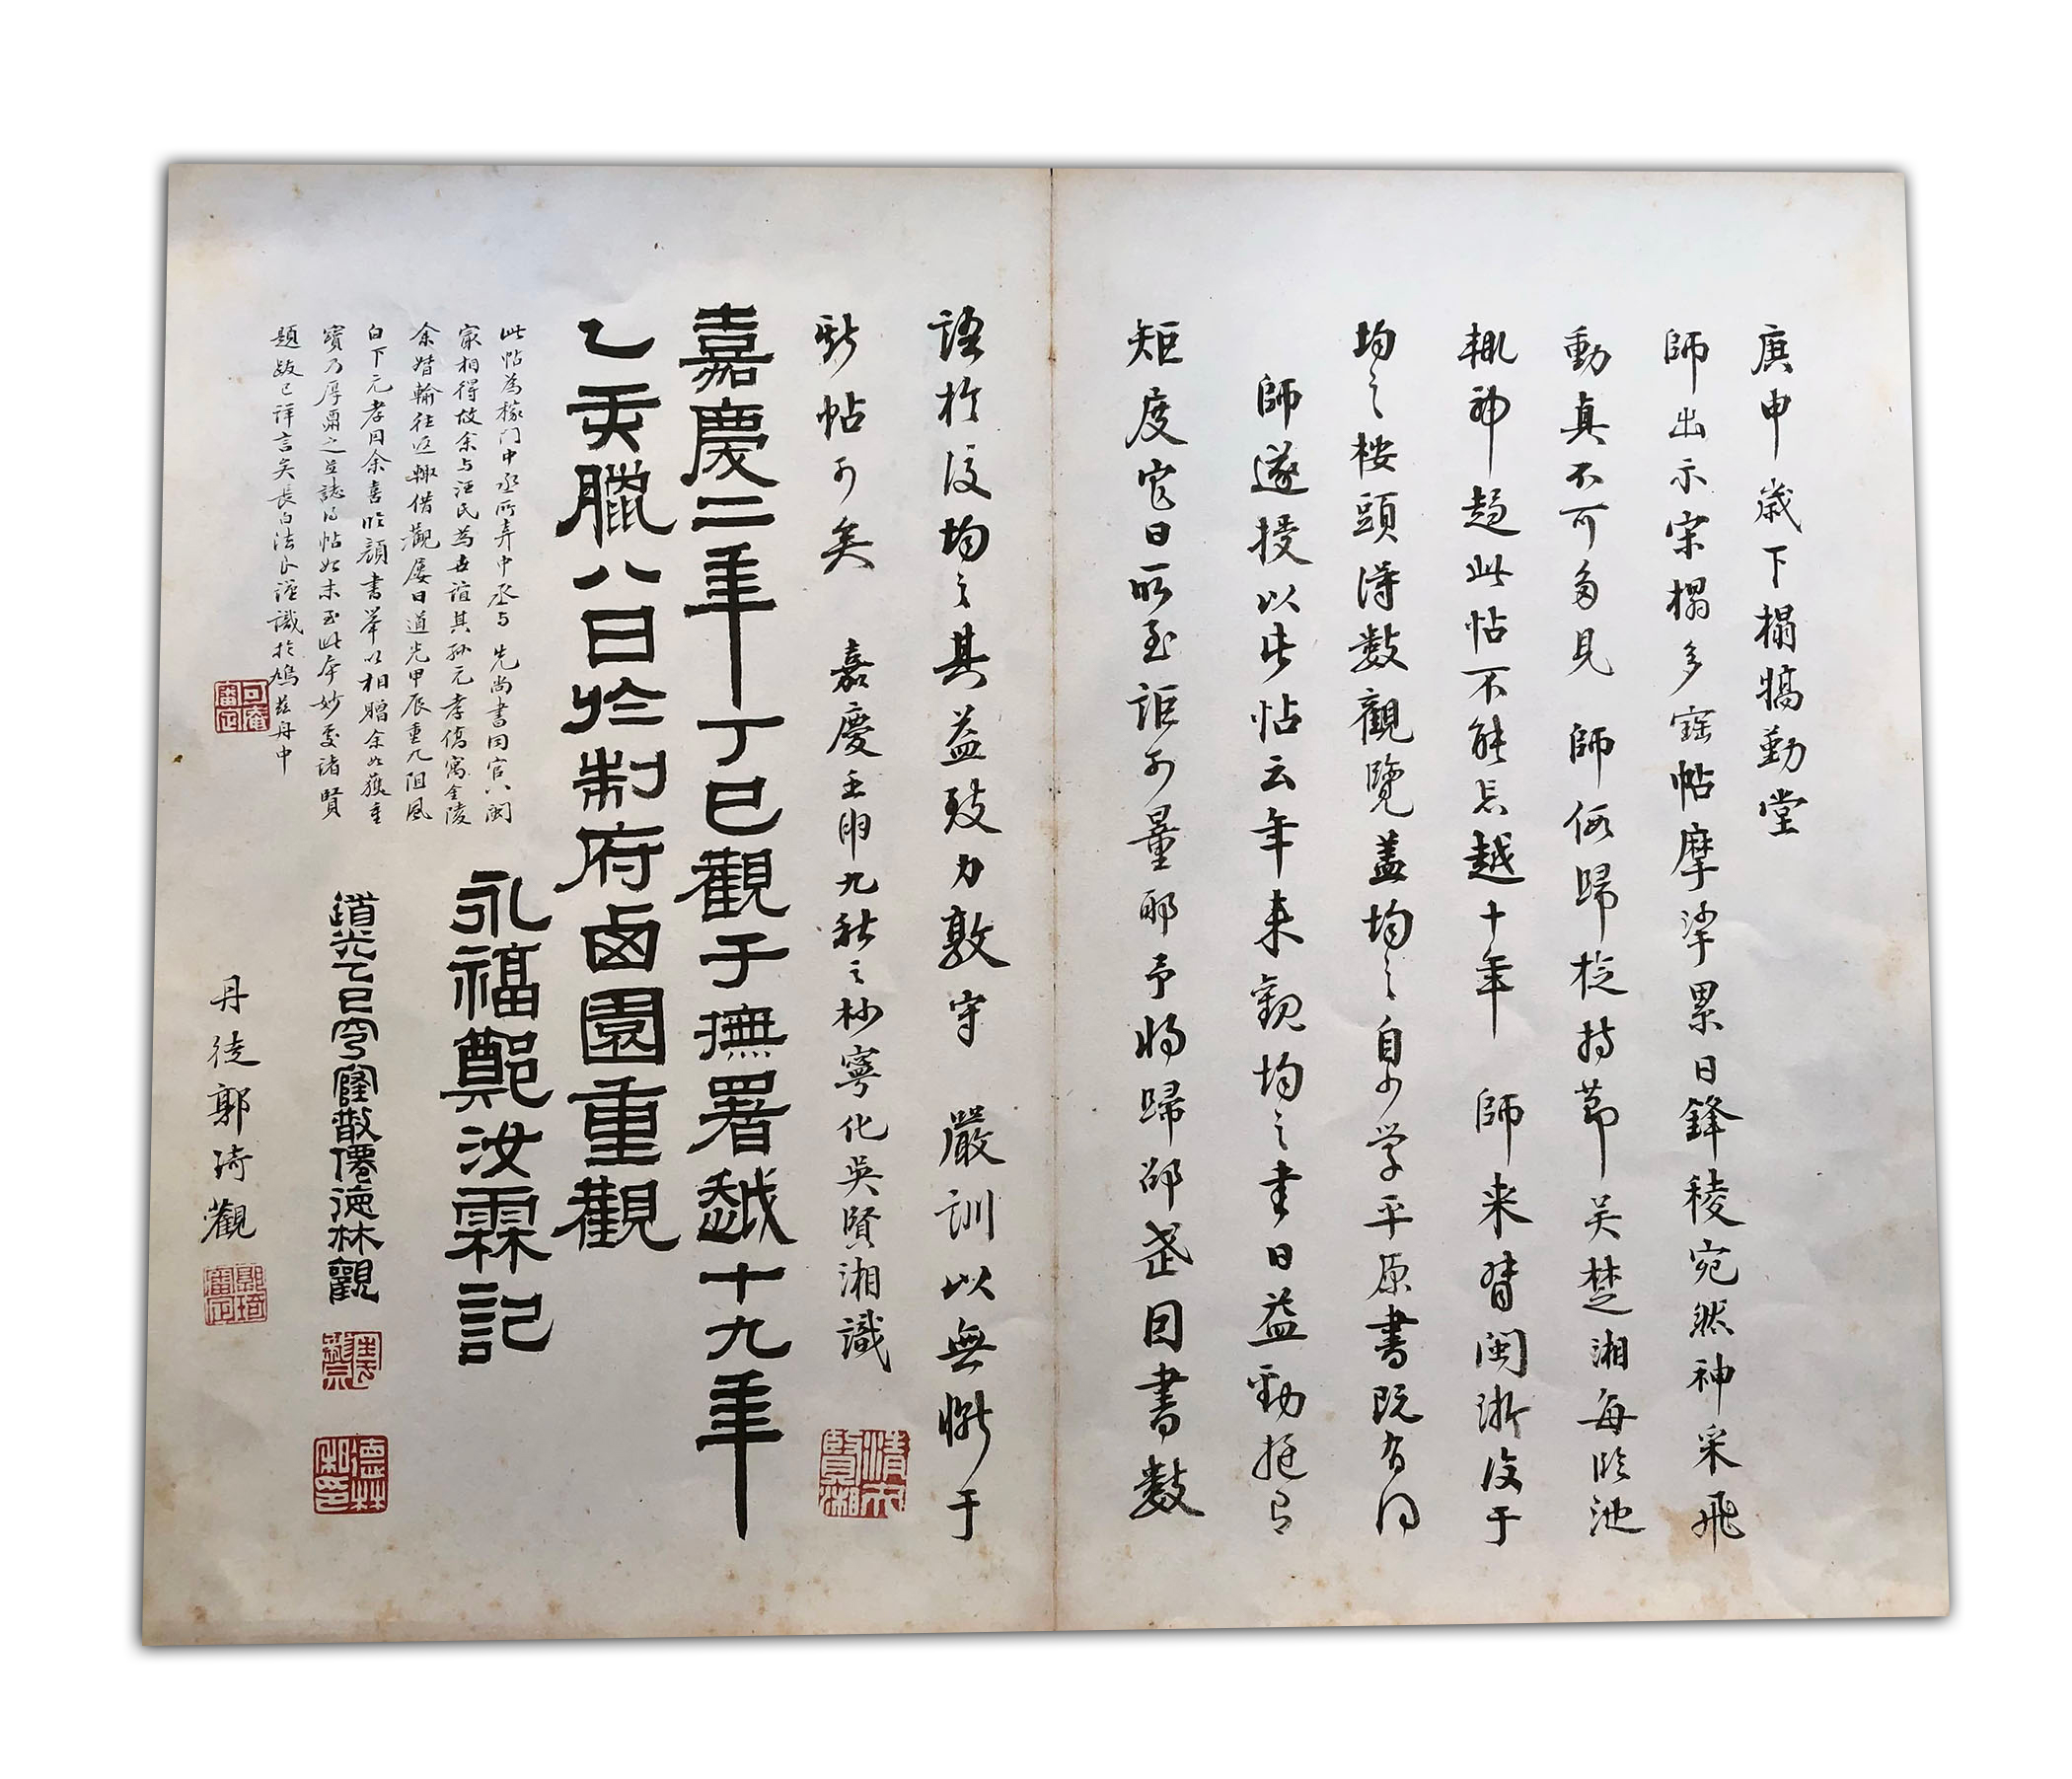 庚申歲下榻犒勤堂
師出示宋搨多寶帖摩挲累日鋒稜宛然神采飛
動真不可多見　師假歸旌持節吳楚湘每臨池
輒神趨此帖不能忘越十年　師来督閩浙復于
均之樓頭得數觀覽蓋均之自少学平原書既有得
師遂授以此帖云年来觀均之書日益勁挺有
矩度它日所至詎可量耶予將歸邵武因書數
語於後均之其益致力敦守　嚴訓以無慚于
斯帖可矣　嘉慶壬申九秋之杪寧化吳賢湘識
清夫 賢湘
嘉慶二年丁巳觀于撫署越十九年
乙亥臘八日於制府卤園重觀
永福鄭汝霖記
此帖為稼門中丞所弆中丞与　先尚書同官八閩
家相得故余与汪氏為世誼其孫元孝僑寓金陵
余督輸往返輒借觀屢日道光甲辰重九阻風
白下元孝因余喜臨顏書舉以相贈余如獲重
寶乃厚酬之並誌得帖始末至此本妙處諸賢
題跋已詳言矣長白法良謹識於鳩茲舟中
可庵審定
道光乙巳穹窿散僊德林觀
德林私印
丹徒郭琦觀
郭琦審定